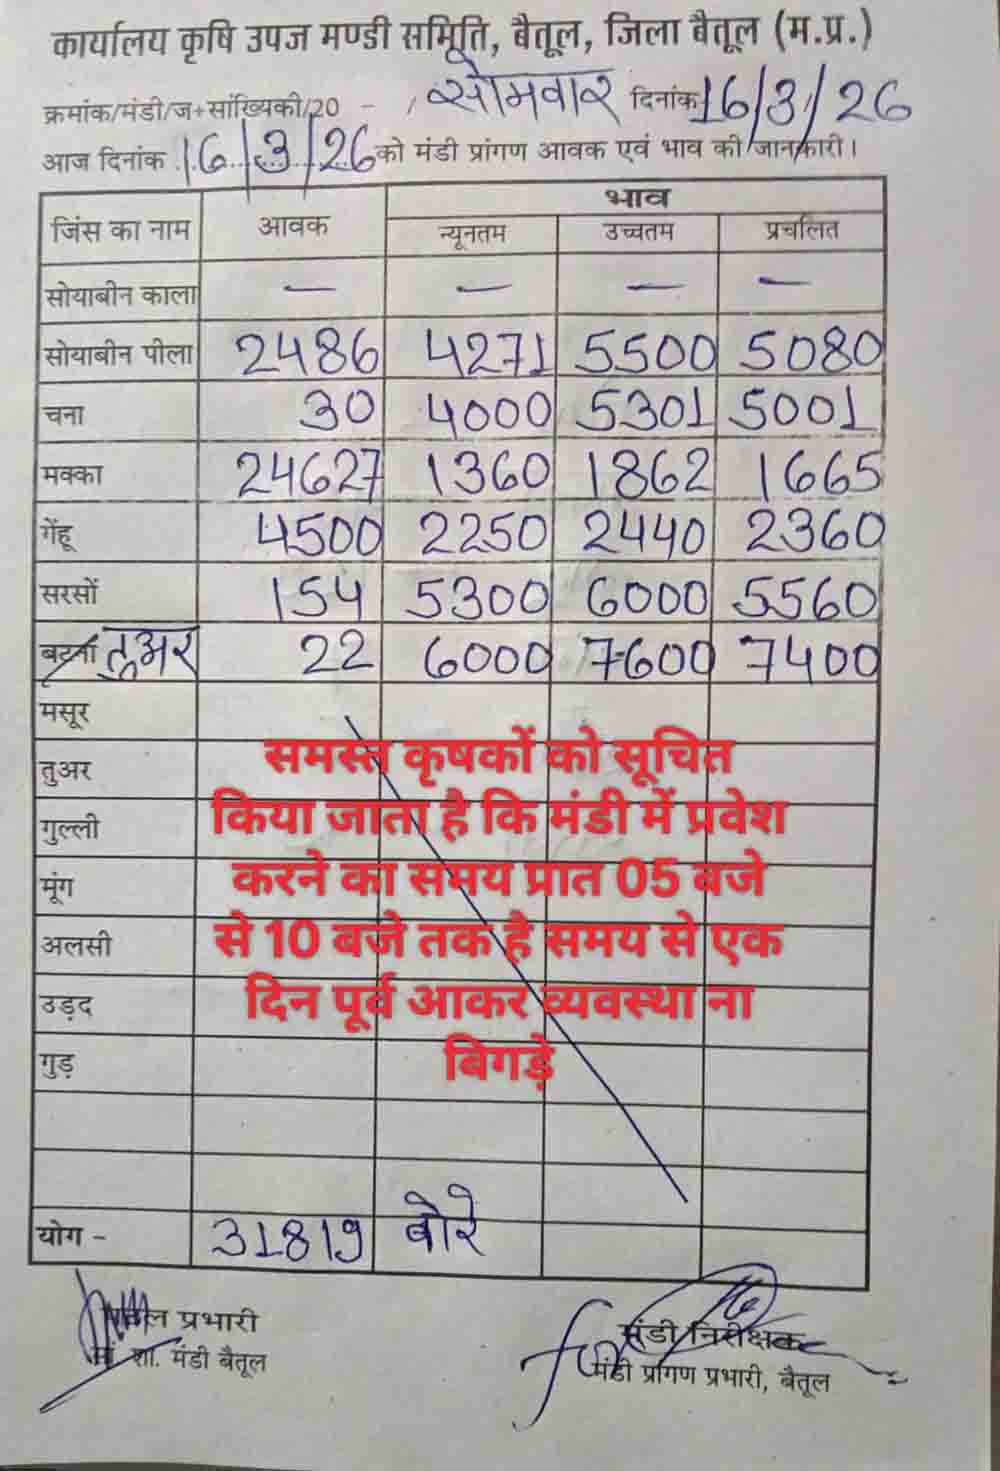 कार्यालय कृषि उपज मण्डी समिति, बैतूल, जिला बैतूल (म.प्र.)
क्रमांक/मंडी/ज+सांख्यिकी/20 - / सोमवार दिनांक 16/3/26
आज दिनांक 16/3/26 को मंडी प्रांगण आवक एवं भाव की जानकारी।
जिंस का नाम आवक भाव
न्यूनतम उच्चतम प्रचलित
सोयाबीन काला — — — —
सोयाबीन पीला 2486 4271 5500 5080
चना 30 4000 5301 5001
मक्का 24627 1360 1862 1665
गेंहू 4500 2250 2440 2360
सरसों 154 5300 6000 5560
बटना तुअर 22 6000 7600 7400
मसूर
तुअर
गुल्ली
मूंग
अलसी
उड़द
गुड़
समस्त कृषकों को सूचित
किया जाता है कि मंडी में प्रवेश
करने का समय प्रात 05 बजे
से 10 बजे तक है समय से एक
दिन पूर्व आकर व्यवस्था ना
बिगड़े
योग - 31819 बोरे
प्रभारी
शा. मंडी बैतूल
मंडी निरीक्षक
मंडी प्रांगण प्रभारी, बैतूल